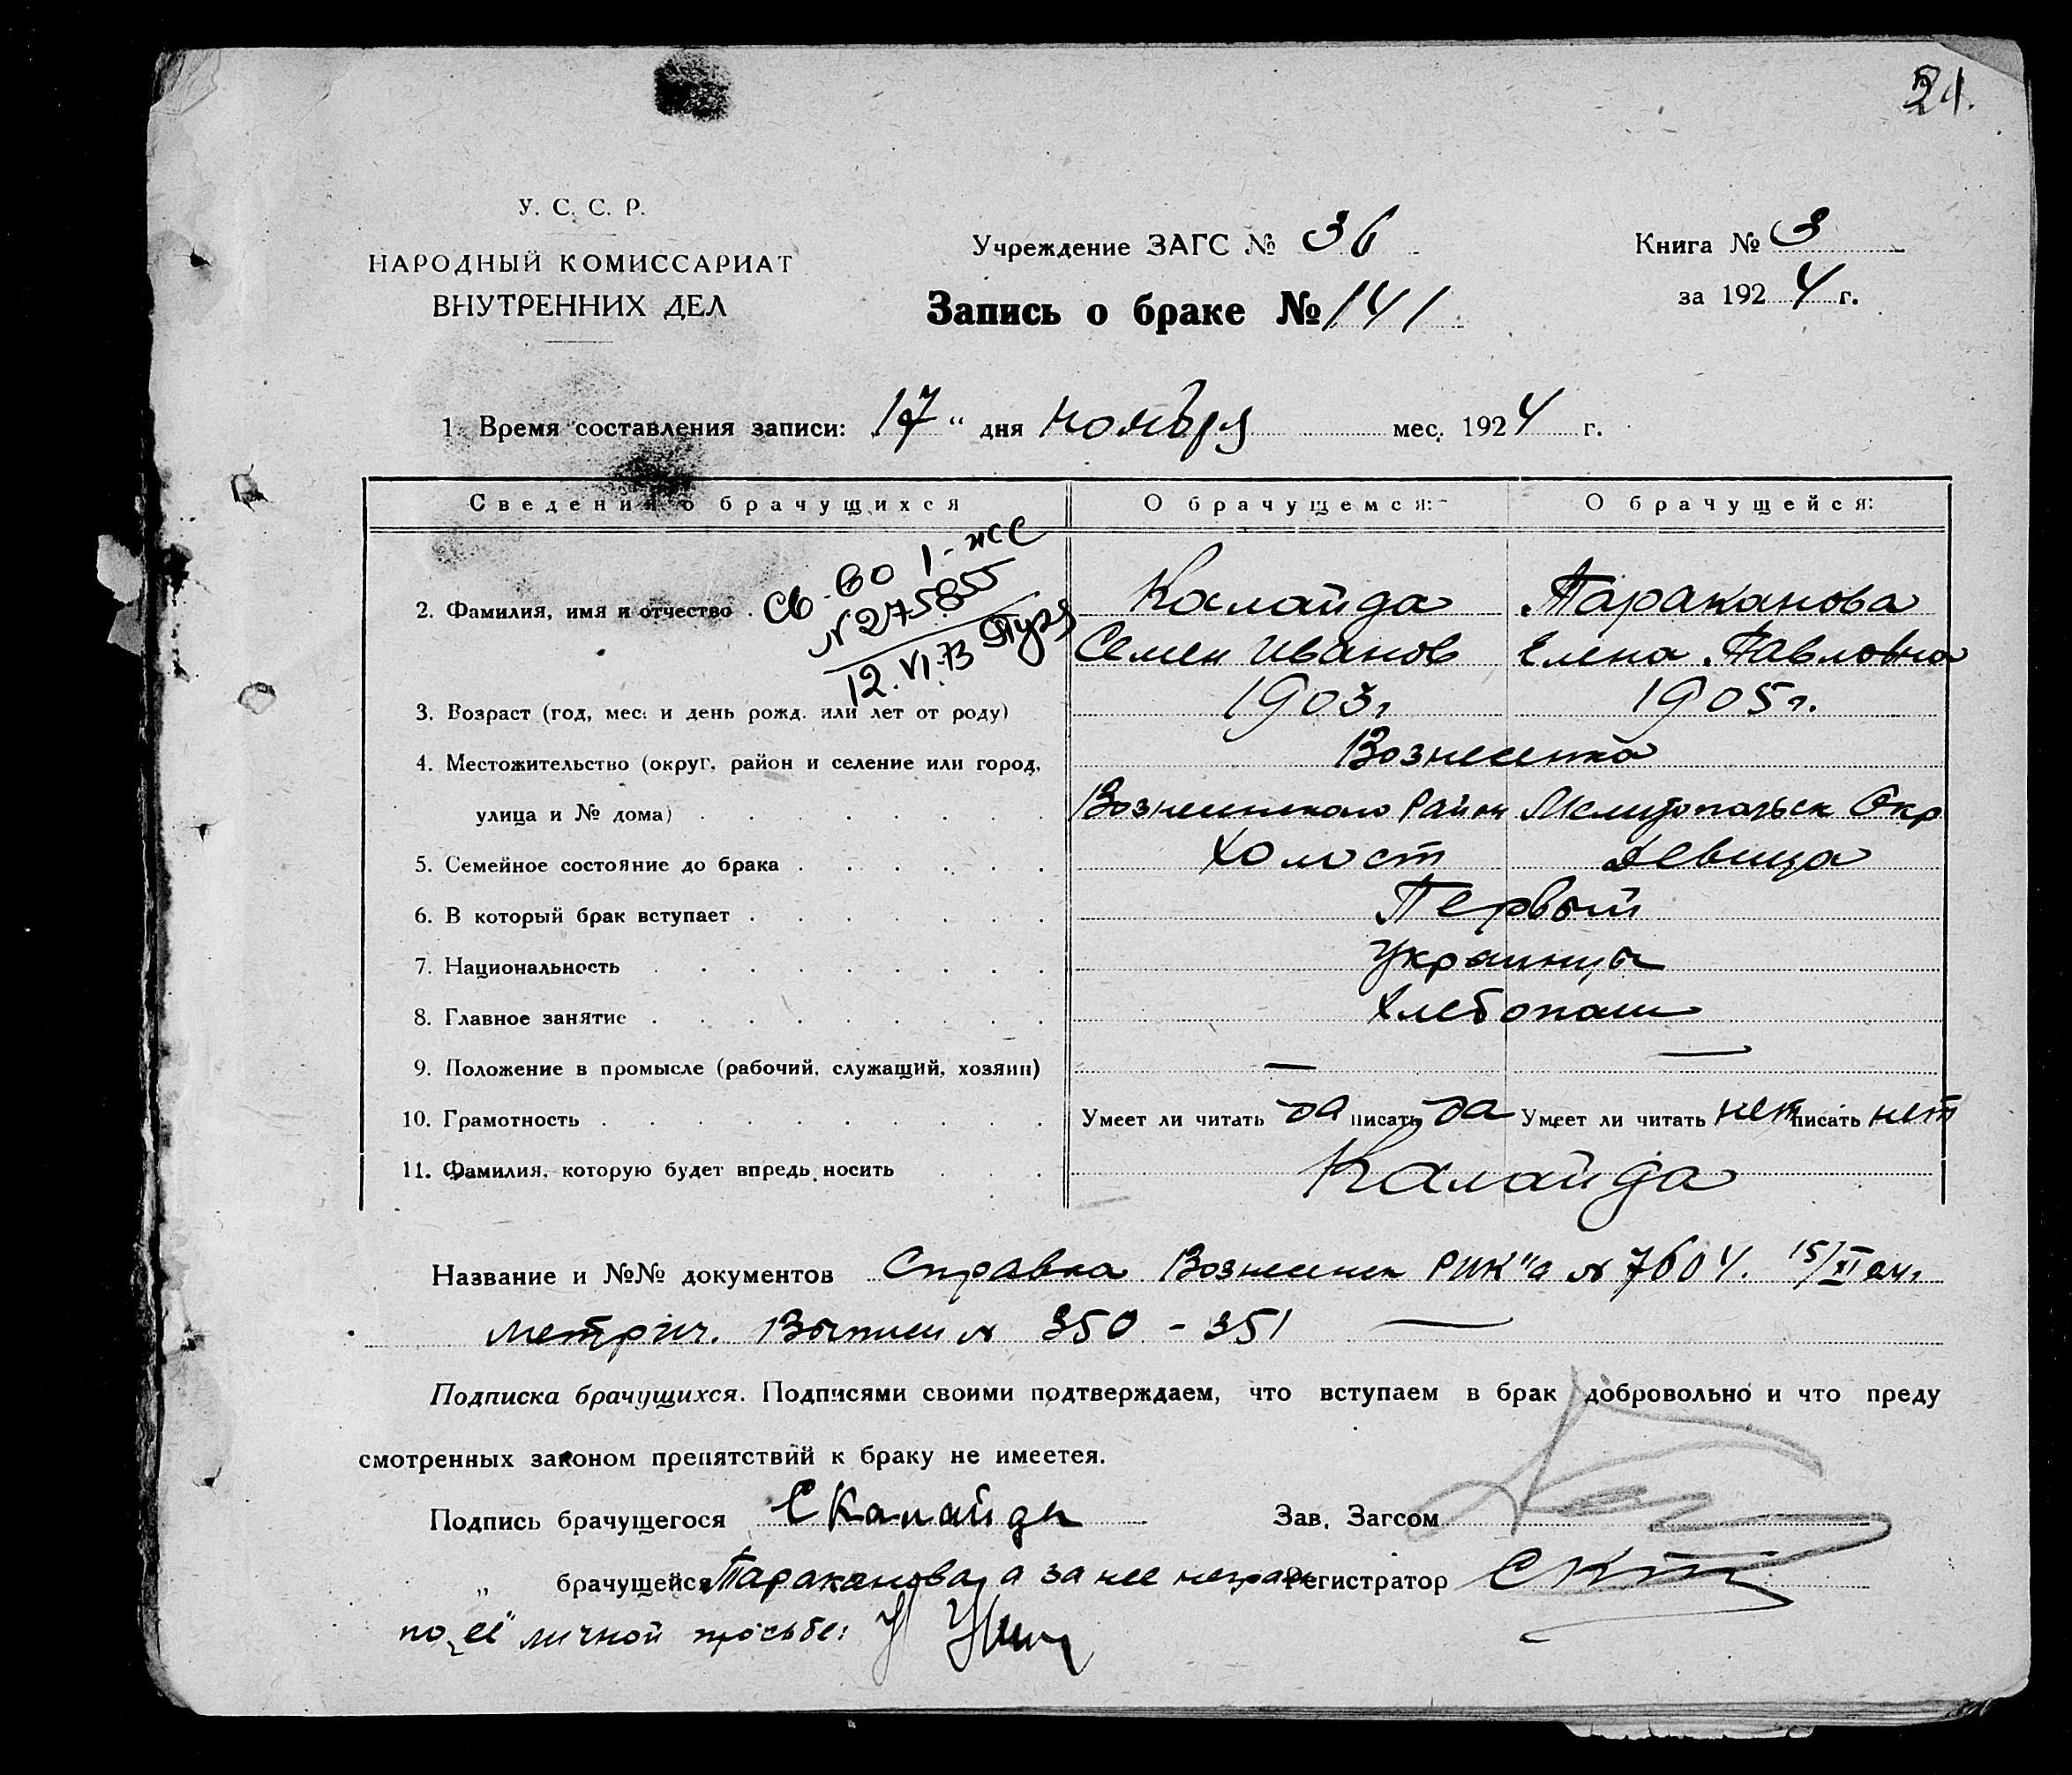 21.
У. С. С. Р.
НАРОДНЫЙ КОМИССАРИАТ
ВНУТРЕННИХ ДЕЛ
Учреждение ЗАГС № 36
Запись о браке № 141
Книга № 3
за 1924 г.
1. Время составления записи: 17 " дня ноября мес. 1924 г.
Сведения о брачущихся О брачущемся: О брачущейся:
Св-во 1-жс
N 275855
12.VI.73
2. Фамилия, имя и отчество . Калайда Тараканова
Семен Иванов Елена Павловна
3. Возраст (год, мес. и день рожд. или лет от роду) 1903г 1905г.
4. Местожительство (округ, район и селение или город, Вознесенка
улица и № дома) Вознесенского Район Мелитопольск Окр
5. Семейное состояние до брака холост девица
6. В который брак вступает Первый
7. Национальность Украинцы
8. Главное занятие Хлебопаш
9. Положение в промысле (рабочий, служащий, хозяин) — —
10. Грамотность Умеет ли читать да писать да Умеет ли читать нет писать нет
11. Фамилия, которую будет впредь носить Калайда
Название и №№ документов Справка Вознесенск РИК"а № 7604. 15/XI 24г
метрич. Выписи № 350 - 351 —
Подписка брачущихся. Подписями своими подтверждаем, что вступаем в брак добровольно и что преду
смотренных законом препятствий к браку не имеется.
Подпись брачущегося С Калайда Зав. Загсом
„ брачущейся Тараканова, а за нее неграм Регистратор
по ее личной просьбе: